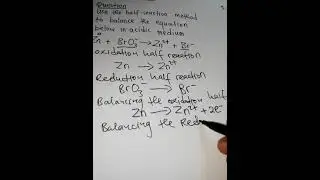 Question
Use the half-reaction method
to balance the equation
below in acidic medium
Zn + BrO3⁻ → Zn²⁺ + Br⁻
oxidation half reaction
Zn → Zn²⁺
Reduction half reaction
BrO3⁻ → Br⁻
Balancing the oxidation half
Zn → Zn²⁺ + 2e⁻
Balancing the Red